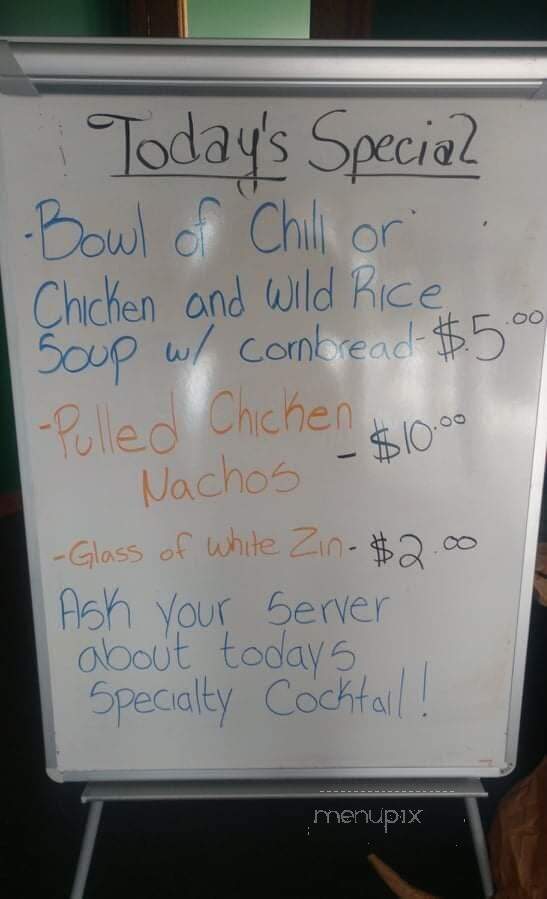 Today's Special
-Bowl of Chili or
Chicken and Wild Rice
Soup w/ cornbread-$5.00
-Pulled Chicken
Nachos - $10.00
-Glass of White Zin-$2.00
Ask your Server
about todays
Specialty Cocktail!
menupix